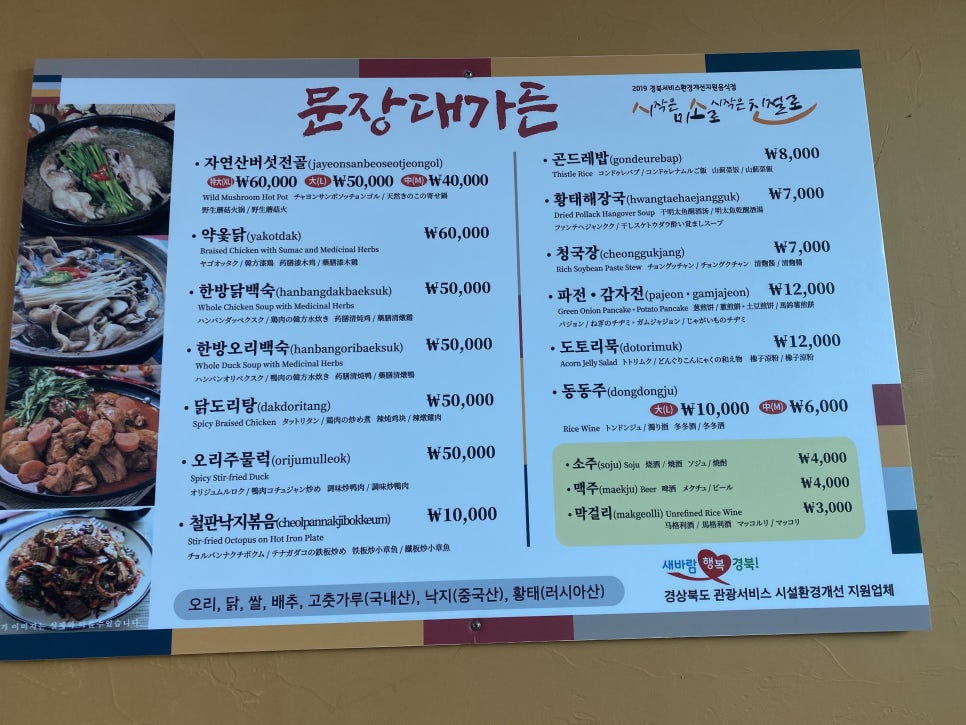 문장대가든
2019 경북서비스환경개선지원음식점
시작은 미소로 시작은 친절로
• 자연산버섯전골(jayeonsanbeoseotjeongol)
特大(XL) ₩60,000 大(L) ₩50,000 中(M) ₩40,000
Wild Mushroom Hot Pot チャヨンサンボソッチョンゴル / 天然きのこの寄せ鍋
野生蘑菇火锅 / 野生蘑菇火
• 약옻닭(yakotdak) ₩60,000
Braised Chicken with Sumac and Medicinal Herbs
ヤゴオッタク / 韓方漆鶏 药膳漆木鸡 / 藥膳漆木雞
• 한방닭백숙(hanbangdakbaeksuk) ₩50,000
Whole Chicken Soup with Medicinal Herbs
ハンバンダッペクスク / 鶏肉の韓方水炊き 药膳清炖鸡 / 藥膳清燉雞
• 한방오리백숙(hanbangoribaeksuk) ₩50,000
Whole Duck Soup with Medicinal Herbs
ハンバンオリペクスク / 鴨肉の韓方水炊き 药膳清炖鸭 / 藥膳清燉鴨
• 닭도리탕(dakdoritang) ₩50,000
Spicy Braised Chicken タットリタン / 鶏肉の炒め煮 辣炖鸡块 / 辣燉雞肉
• 오리주물럭(orijumulleok) ₩50,000
Spicy Stir-fried Duck
オリジュムルロク / 鴨肉コチュジャン炒め 调味炒鸭肉 / 調味炒鴨肉
• 철판낙지볶음(cheolpannakjibokkeum) ₩10,000
Stir-fried Octopus on Hot Iron Plate
チョルパンナクチポクム / テナガダコの鉄板炒め 铁板炒小章鱼 / 鐵板炒小章魚
• 곤드레밥(gondeurebap) ₩8,000
Thistle Rice コンドゥレパプ / コンドゥレナムルご飯 山蓟菜饭 / 山薊菜飯
• 황태해장국(hwangtaehaejangguk) ₩7,000
Dried Pollack Hangover Soup 干明太鱼醒酒汤 / 明太魚乾醒酒湯
ファンテヘジャンクク / 干しスケトウダラ酔い覚ましスープ
• 청국장(cheonggukjang) ₩7,000
Rich Soybean Paste Stew チョングッチャン / チョングクチャン 清麴酱 / 清麴醬
• 파전 • 감자전(pajeon • gamjajeon) ₩12,000
Green Onion Pancake • Potato Pancake 葱煎饼 / 蔥煎餅 • 土豆煎饼 / 馬鈴薯煎餅
パジョン / ねぎのチヂミ • ガムジャジョン / じゃがいものチヂミ
• 도토리묵(dotorimuk) ₩12,000
Acorn Jelly Salad トトリムク / どんぐりこんにゃくの和え物 橡子凉粉 / 橡子涼粉
• 동동주(dongdongju)
大(L) ₩10,000 中(M) ₩6,000
Rice Wine トンドンジュ / 濁り酒 冬冬酒 / 冬冬酒
• 소주(soju) Soju 烧酒 / 燒酒 ソジュ / 焼酎 ₩4,000
• 맥주(maekju) Beer 啤酒 メクチュ / ビール ₩4,000
• 막걸리(makgeolli) Unrefined Rice Wine ₩3,000
马格利酒 / 馬格利酒 マッコルリ / マッコリ
새바람 행복 경북!
경상북도 관광서비스 시설환경개선 지원업체
오리, 닭, 쌀, 배추, 고춧가루(국내산), 낙지(중국산), 황태(러시아산)